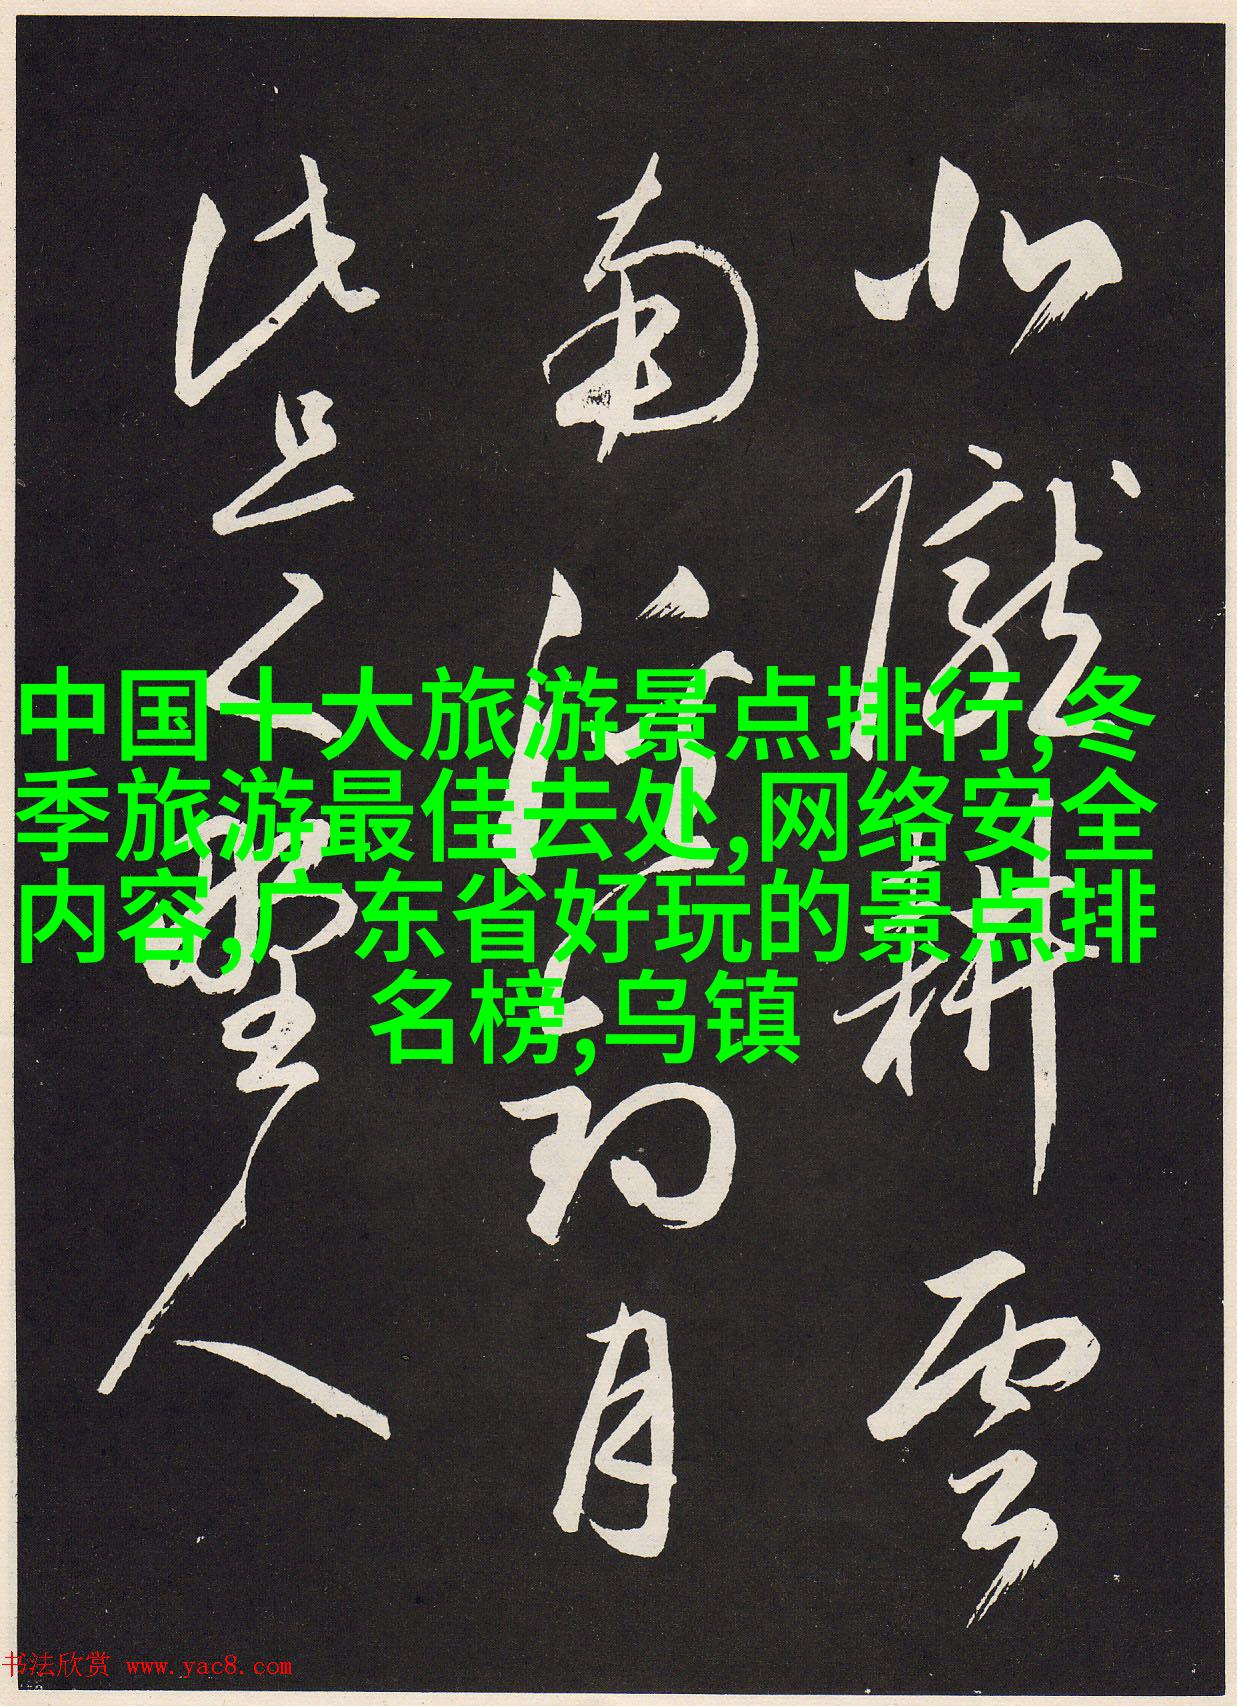 北隴耕雲
南溪釣月
此是野人
中国十大旅游景点排行,冬
季旅游最佳去处,网络安全
内容,广东省好玩的景点排
名榜,乌镇
书法欣赏 www.yac8.com